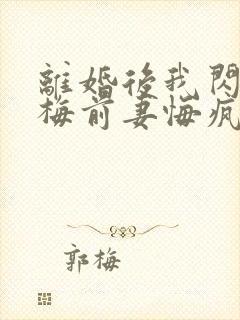 離婚後我閃
梅前妻悔瘋
郭梅